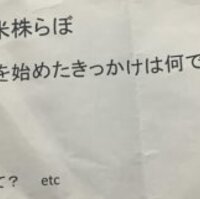 米株らぼ
を始めたきっかけは何で
て? etc